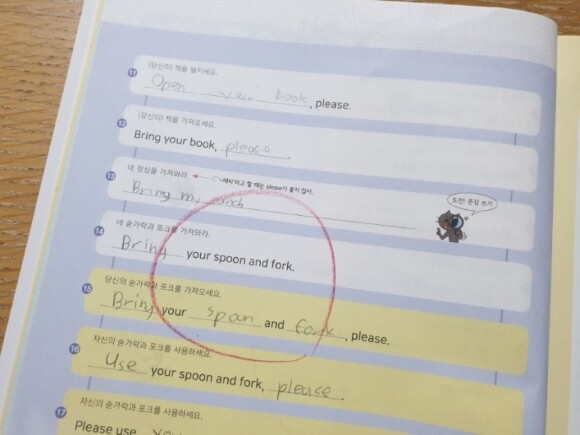 11 (당신의) 책을 펼치세요.
Open your book, please.
12 (당신의) 책을 가져오세요.
Bring your book, please.
13 네 점심을 가져와라. '해라'라고 할 때는 please가 붙지 않아.
Bring my lunch
도전! 문장 쓰기
14 네 숟가락과 포크를 가져와라.
Bring your spoon and fork.
15 당신의 숟가락과 포크를 가져오세요.
Bring your spoon and fork, please.
16 자신의 숟가락과 포크를 사용하세요.
Use your spoon and fork, please.
17 자신의 숟가락과 포크를 사용하세요.
Please use